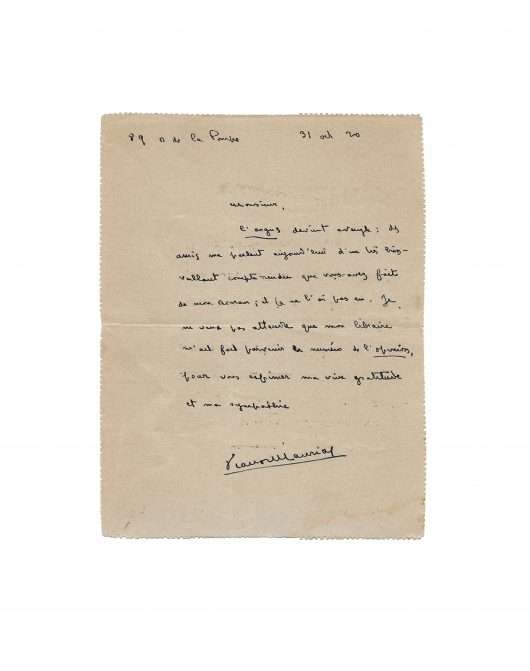 89 r de la Pompe 31 oct 20
Monsieur,
L'argus devient aveugle : des
amis me parlent aujourd'hui d'un très bien-
veillant compte rendu que vous avez fait
de mon roman ; et je ne l'ai pas eu. Je
ne veux pas attendre que mon libraire
m'ait fait parvenir le numéro de l'opinion,
pour vous exprimer ma vive gratitude
et ma sympathie
François Mauriac